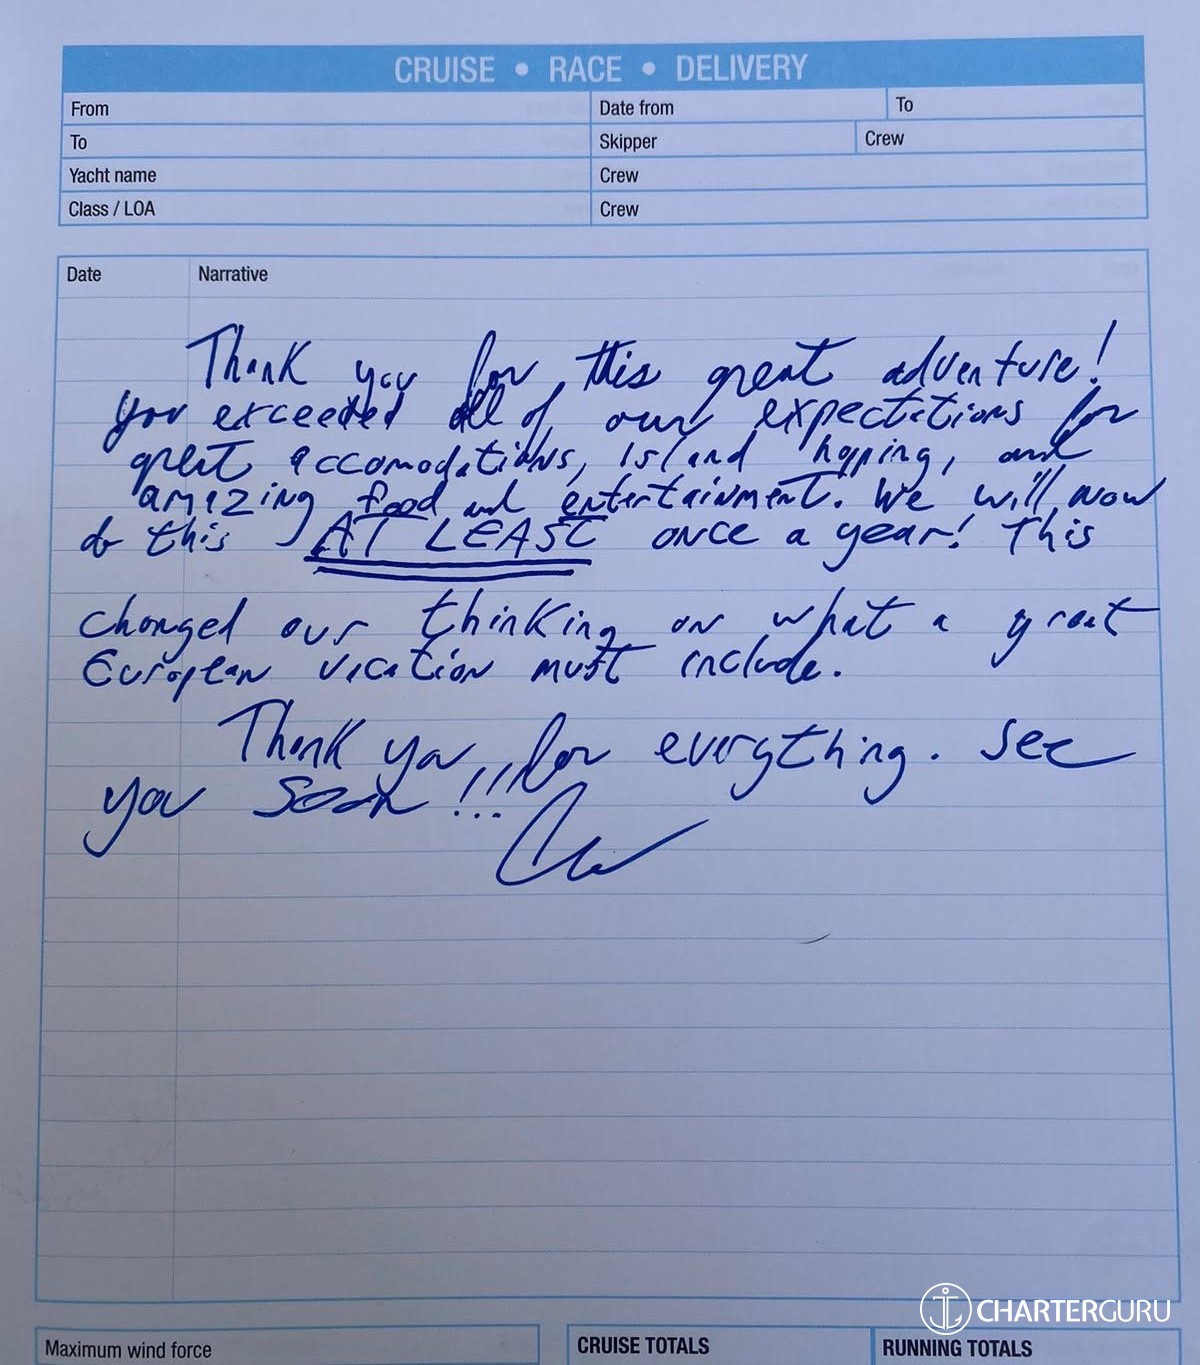 CRUISE • RACE • DELIVERY
From
Date from
To
To
Skipper
Crew
Yacht name
Crew
Class / LOA
Crew
Date
Narrative
Thank you for this great adventure!
You exceeded all of our expectations for
great accomodations, island hopping, and
amazing food and entertainment. We will now
do this AT LEAST once a year! This
changed our thinking on what a great
European vacation must include.
Thank you for everything. See
you soon!!!
CHARTERGURU
Maximum wind force
CRUISE TOTALS
RUNNING TOTALS